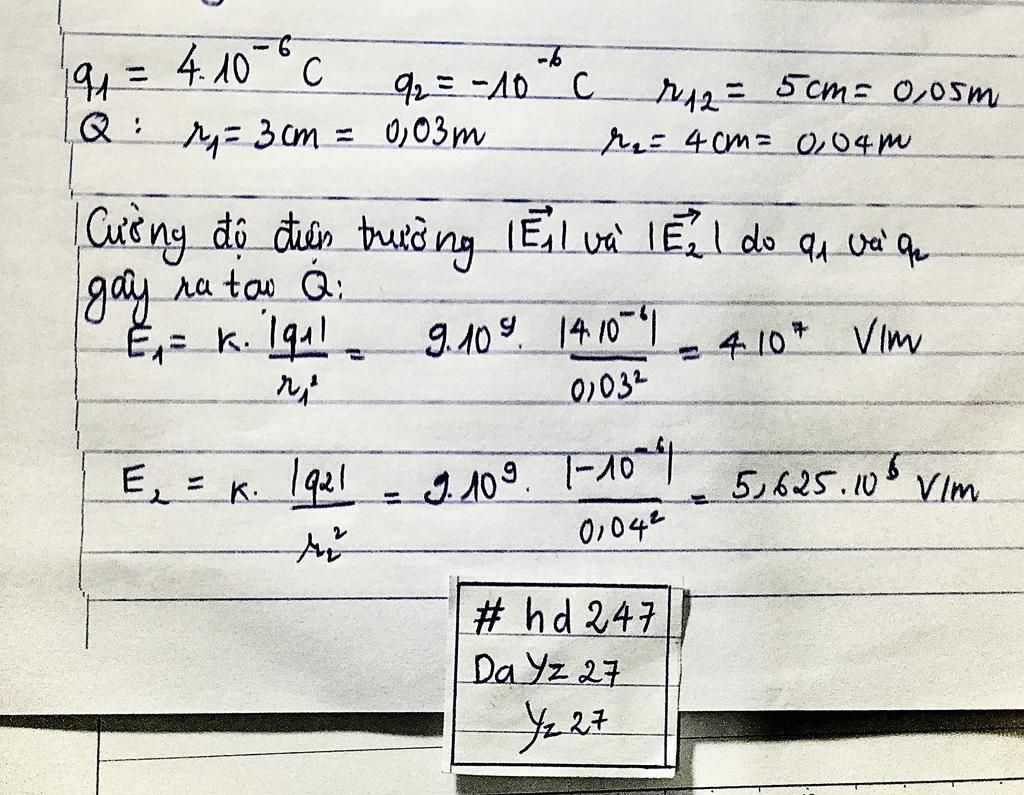 q1 = 4.10^-6 C q2 = -10^-6 C r12 = 5cm = 0,05m
Q : r1 = 3cm = 0,03m r2 = 4cm = 0,04m
Cường độ điện trường |E1→| và |E2→| do q1 và q2
gây ra tại Q:
E1 = K. |q1| / r1² = 9.10^9. |4.10^-6| / 0,03² = 4.10^7 V/m
E2 = K. |q2| / r2² = 9.10^9. |-10^-6| / 0,04² = 5,625.10^6 V/m
# hd 247
Da Yz 27
Yz 27